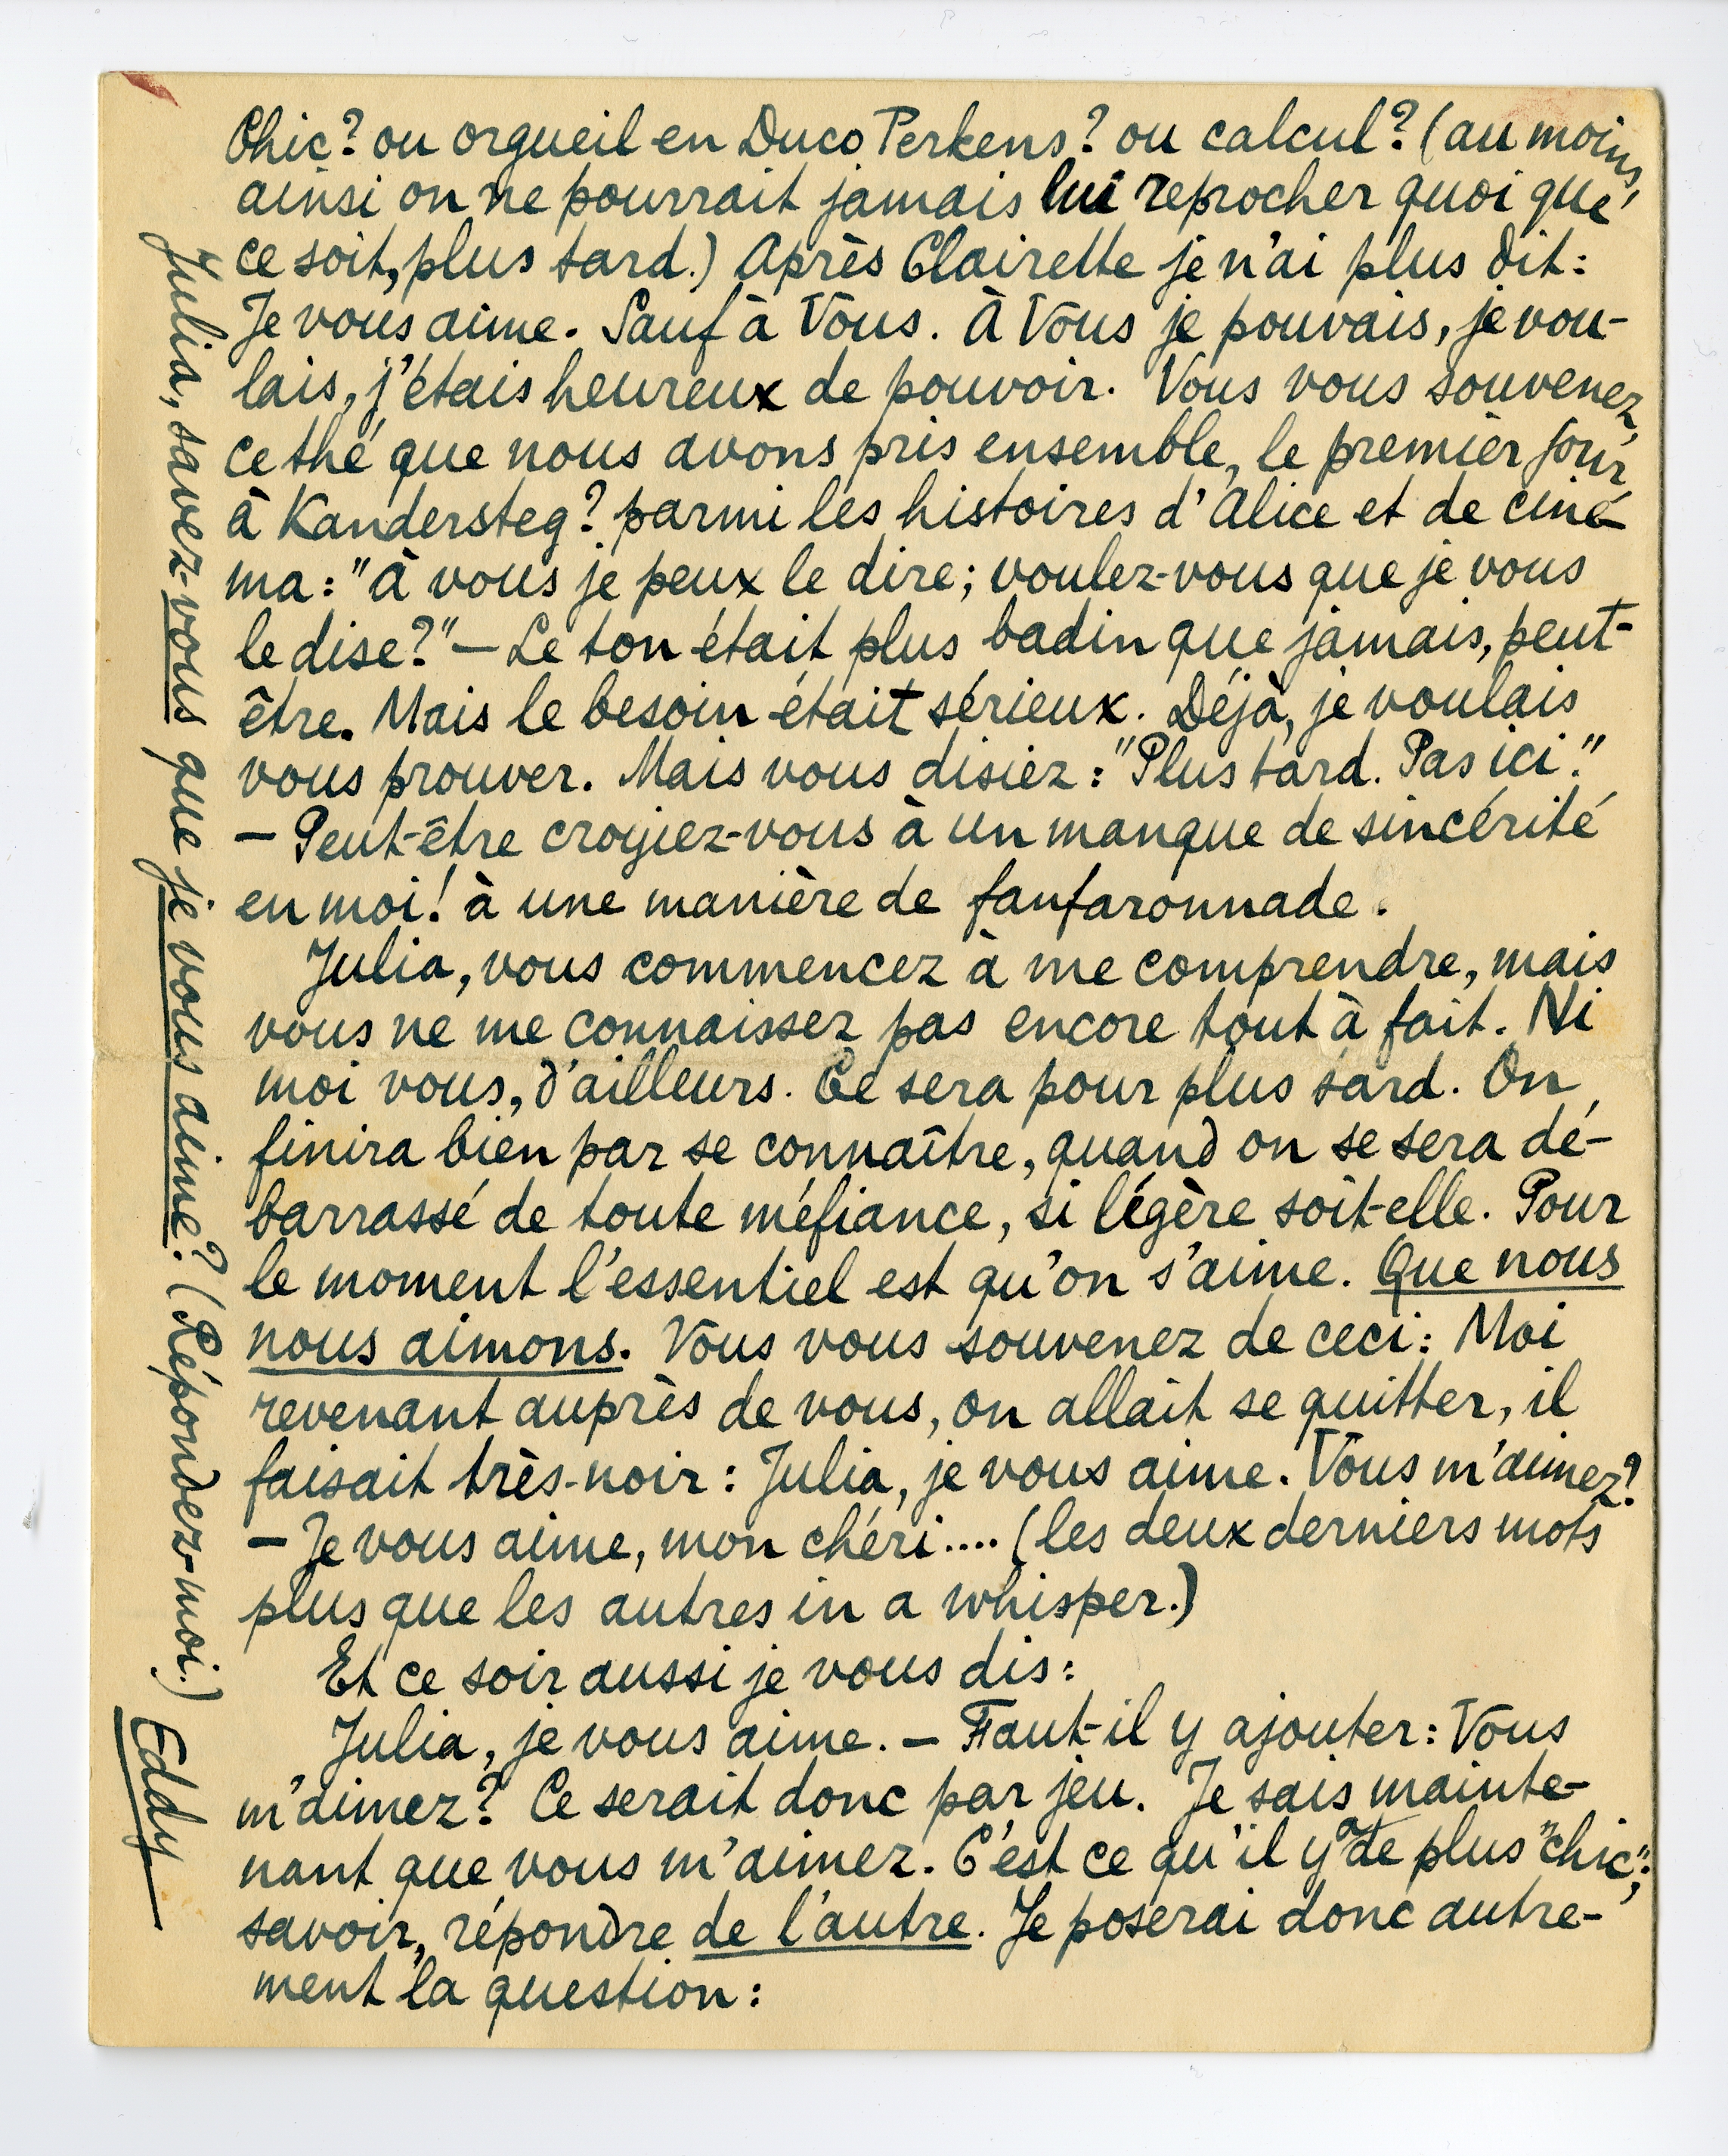 Chic? ou orgueil en Duco Perkens? ou calcul? (au moins,
ainsi on ne pourrait jamais lui reprocher quoi que
ce soit, plus tard.) Après Clairette je n'ai plus dit:
Je vous aime. Sauf à Vous. À Vous je pouvais, je vou-
lais, j'étais heureux de pouvoir. Vous vous souvenez,
ce thé que nous avons pris ensemble, le premier jour
à Kandersteg? parmi les histoires d'Alice et de ciné-
ma: "à vous je peux le dire; voulez-vous que je vous
le dise?" — Le ton était plus badin que jamais, peut-
être. Mais le besoin était sérieux. Déjà, je voulais
vous prouver. Mais vous disiez: "Plus tard. Pas ici."
— Peut-être croyiez-vous à un manque de sincérité
en moi! à une manière de fanfaronnade.
Julia, vous commencez à me comprendre, mais
vous ne me connaissez pas encore tout à fait. Ni
moi vous, d'ailleurs. Ce sera pour plus tard. On
finira bien par se connaître, quand on se sera dé-
barrassé de toute méfiance, si légère soit-elle. Pour
le moment l'essentiel est qu'on s'aime. Que nous
nous aimons. Vous vous souvenez de ceci: Moi
revenant auprès de vous, on allait se quitter, il
faisait très-noir: Julia, je vous aime. Vous m'aimez?
— Je vous aime, mon chéri.... (les deux derniers mots
plus que les autres in a whisper.)
Et ce soir aussi je vous dis:
Julia, je vous aime. — Faut-il y ajouter: Vous
m'aimez? Ce serait donc par jeu. Je sais mainte-
nant que vous m'aimez. C'est ce qu'il y a de plus "chic";
savoir, répondre de l'autre. Je poserai donc autre-
ment la question:
Julia, savez-vous que je vous aime? (Répondez-moi.)
Eddy